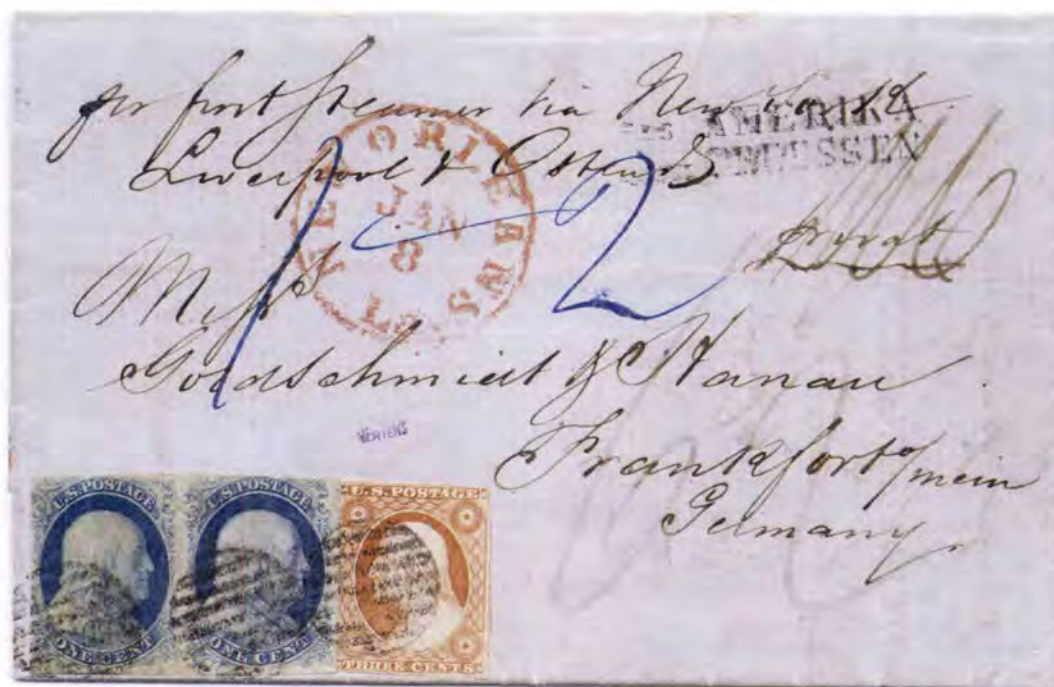 per first steamer via New York
Liverpool & Ostend
AMERIKA
PREUSSEN
NEW ORLEANS
JAN
8
La.
1 2
Messrs
Goldschmidt & Hanau
Frankfort o/mein
Germany
MERTENS
U.S. POSTAGE
ONE CENT
U.S. POSTAGE
ONE CENT
U.S. POSTAGE
THREE CENTS